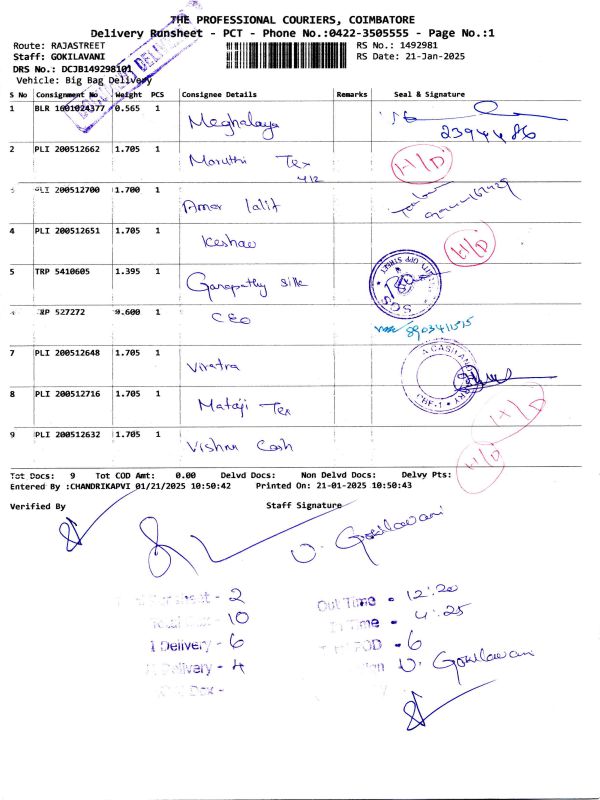 THE PROFESSIONAL COURIERS, COIMBATORE
Delivery Runsheet - PCT - Phone No.:0422-3505555 - Page No.:1
Route: RAJASTREET
RS No.: 1492981
Staff: GOKILAVANI
RS Date: 21-Jan-2025
DRS No.: DCJB149298101
Vehicle: Big Bag Delivery
S No Consignment No Weight PCS Consignee Details Remarks Seal & Signature
1 BLR 1601024377 0.565 1 Meghalaya
2394486
2 PLI 200512662 1.705 1 Maruthi Tex H/D
412
PLI 200512700 1.700 1 Amar lalit
4 PLI 200512651 1.705 1 Keshav H/D
5 TRP 5410605 1.395 1 Ganapathy Silk
SGS
527272 0.600 1 CEO
7 PLI 200512648 1.705 1 Viratra
CBE-1
8 PLI 200512716 1.705 1 Mataji Tex H/D
9 PLI 200512632 1.705 1 Vishnu Cash H/D
Tot Docs: 9 Tot COD Amt: 0.00 Delvd Docs: Non Delvd Docs: Delvy Pts:
Entered By :CHANDRIKAPVI 01/21/2025 10:50:42 Printed On: 21-01-2025 10:50:43
Verified By Staff Signature
V. Gokilavani
Runsheet - 2
Out Time - 12:20
Total Dox - 10
In Time - 4:25
Delivery - 6
POD - 6
Delivery - 4
V. Gokilavani
Dox -